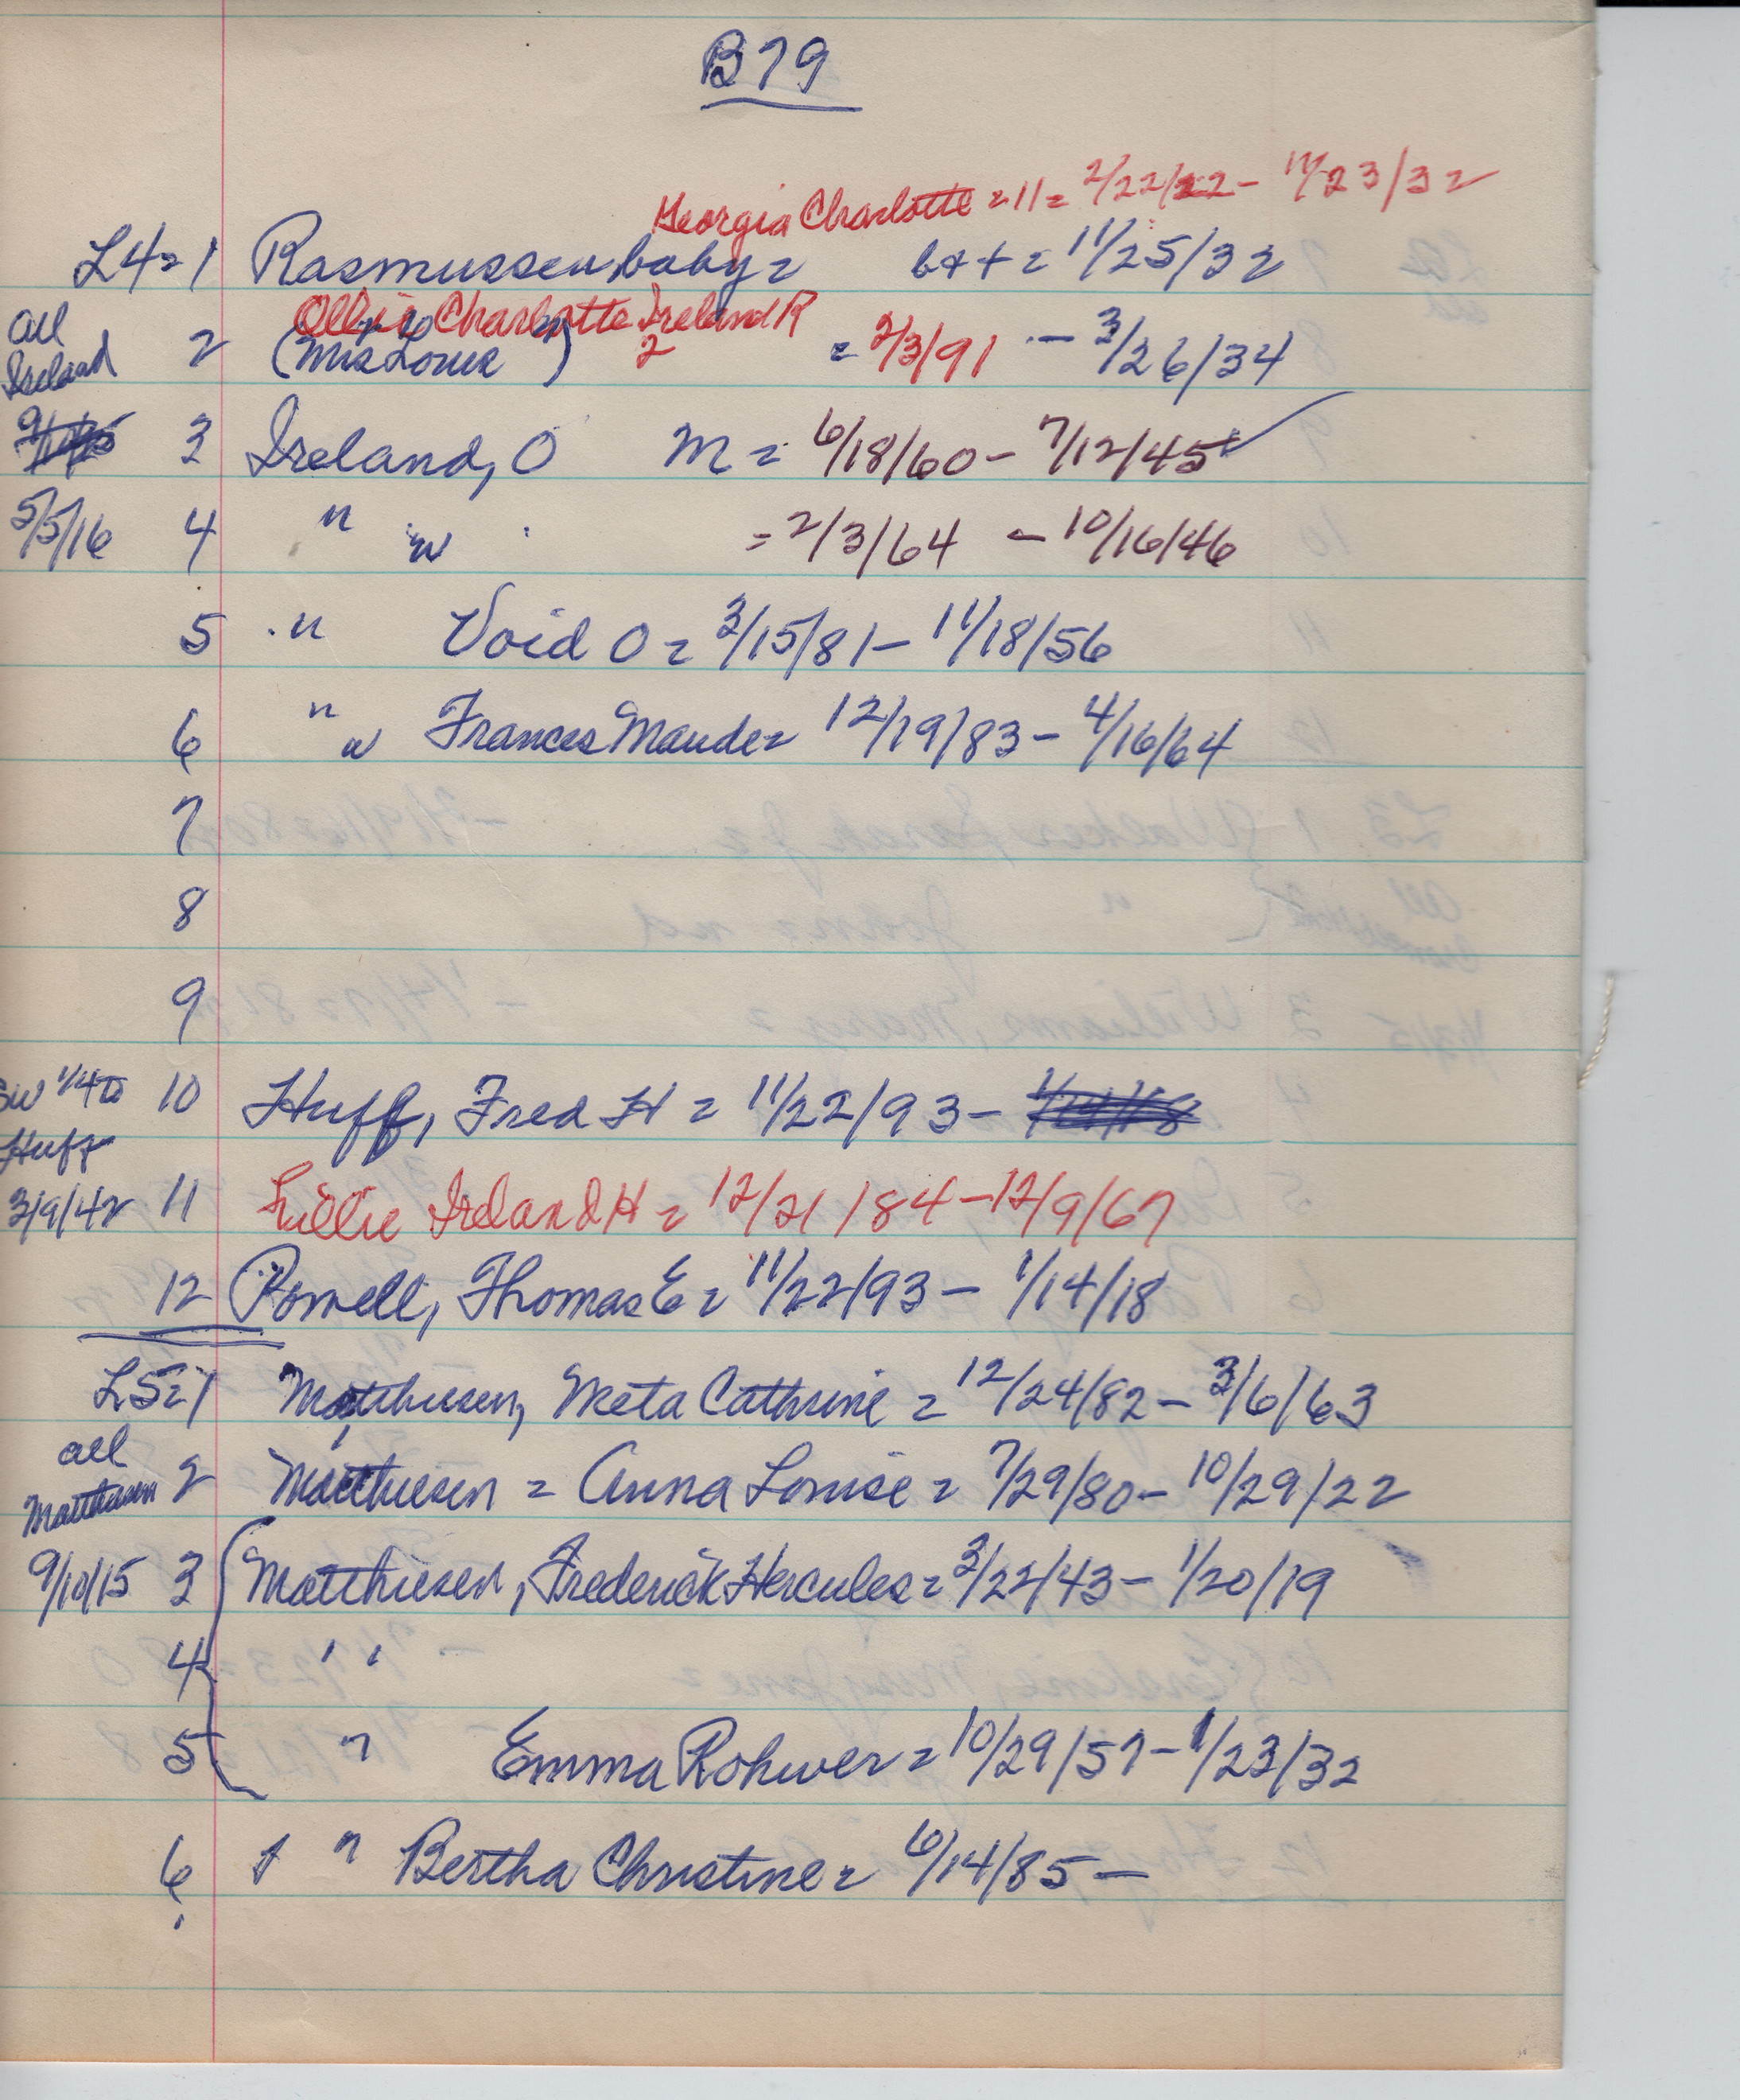 B79
Georgia Charlotte = 11 = 2/22/22 - 11/23/32
L4 = 1 Rasmussen, baby = b + + = 11/25/32
Ollie Charlotte Ireland R
All 2 (Mrs Louie ) 2 = 2/3/91 - 3/26/34
Ireland
3 Ireland, O M = 6/18/60 - 7/12/45
5/5/16 4 " w = 2/3/64 - 10/16/46
5 " Void O = 3/15/81 - 11/18/56
6 " w Frances Maude = 12/19/83 - 4/16/64
7
8
9
SW 1/4 10 Huff, Fred H = 11/22/93 -
Huff
3/9/42 11 Lillie Ireland H = 12/21/84 - 12/9/67
12 Powell, Thomas E = 11/22/93 - 1/14/18
L5 = 1 Matthiesen, Meta Cathrine = 12/24/82 - 3/6/63
all 2 Matthiesen = Anna Louise = 7/29/80 - 10/29/22
Matthiesen
9/10/15 3 Matthiesen, Frederick Hercules = 3/22/43 - 1/20/19
4 " "
5 " Emma Rohwer = 10/29/57 - 1/23/32
6 " Bertha Christine = 6/14/85 -